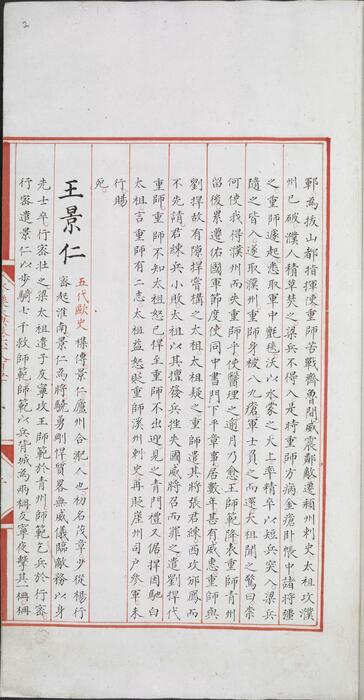 鄆爲拔山都指揮使重師苦戰齊魯間威震鄰敵遷潁州刺史太祖攻濮
州已破濮人積草焚之梁兵不得入是時重師方病金瘡卧帳中諸將彊
之重師遽起悉取軍中氊毯沃以水蒙之火上率精卒以短兵突入梁兵
隨之皆入遂取濮州重師身被八九瘡軍士負之而還太祖聞之驚曰柰
何使我得濮州而失重師乎使醫理之逾月乃愈王師範降表重師青州
留後累遷佑國軍節度使同中書門下平章事居數年甚有威惠重師與
劉捍故有隙捍嘗構之太祖太祖疑之重師遣其將張君練西攻邠鳳而
不先請君練兵小敗太祖以其擅發兵挫失國威將召而罪之遣劉捍代
重師重師不知太祖怒已捍至重師不出迎見之青門禮又倨捍因馳白
太祖言重師有二志太祖益怒貶重師溪州刺史再貶崖州司戶參軍未
行賜
死
王景仁 五代歐史梁傳景仁廬州合淝人也初名茂章少從楊行
密起淮南景仁爲將驍勇剛悍質畧無威儀臨敵務以身
先士卒行密壯之梁太祖遣子友寧攻王師範於青州師範乞兵於行密
行密遣景仁以步騎七千救師範師範以兵背城爲兩柵友寧夜擊其一柵柵
2